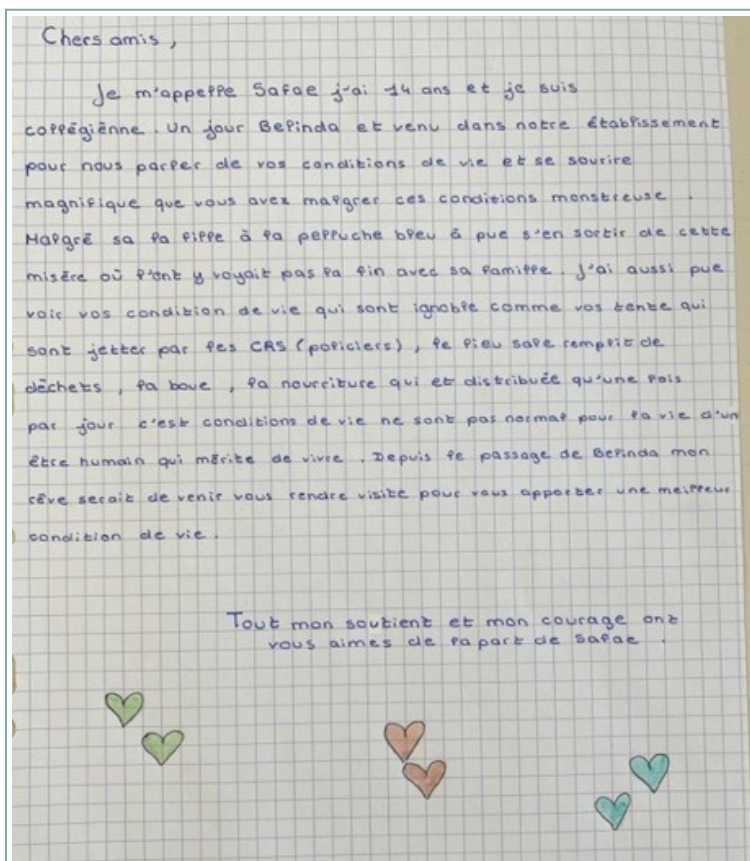 Chers amis,
Je m'appelle Safae j'ai 14 ans et je suis
collégiènne. Un jour Belinda et venu dans notre établissement
pour nous parler de vos conditions de vie et se sourire
magnifique que vous avez malgrer ces conditions monstreuse.
Malgré sa la fille à la pelluche bleu à pue s'en sortir de cette
misère où l'ont y voyait pas la fin avec sa famille. J'ai aussi pue
voir vos condition de vie qui sont ignoble comme vos tente qui
sont jetter par les CRS (policiers), le lieu sale remplit de
déchets, la boue, la nourriture qui et distribuée qu'une fois
par jour c'est conditions de vie ne sont pas normal pour la vie d'un
être humain qui mérite de vivre. Depuis le passage de Belinda mon
rêve serait de venir vous rendre visite pour vous apporter une meilleur
condition de vie.
Tout mon soutient et mon courage ont
vous aimes de la part de Safae.